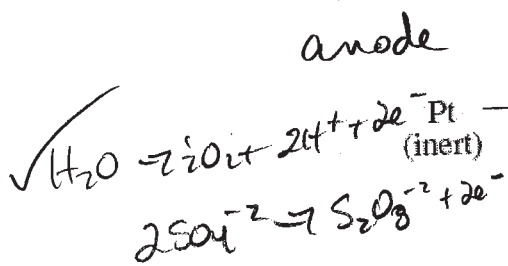 anode
✓ H₂O → ½O₂ + 2H⁺ + 2e⁻ Pt —
(inert)
2SO₄⁻² → S₂O₈⁻² + 2e⁻